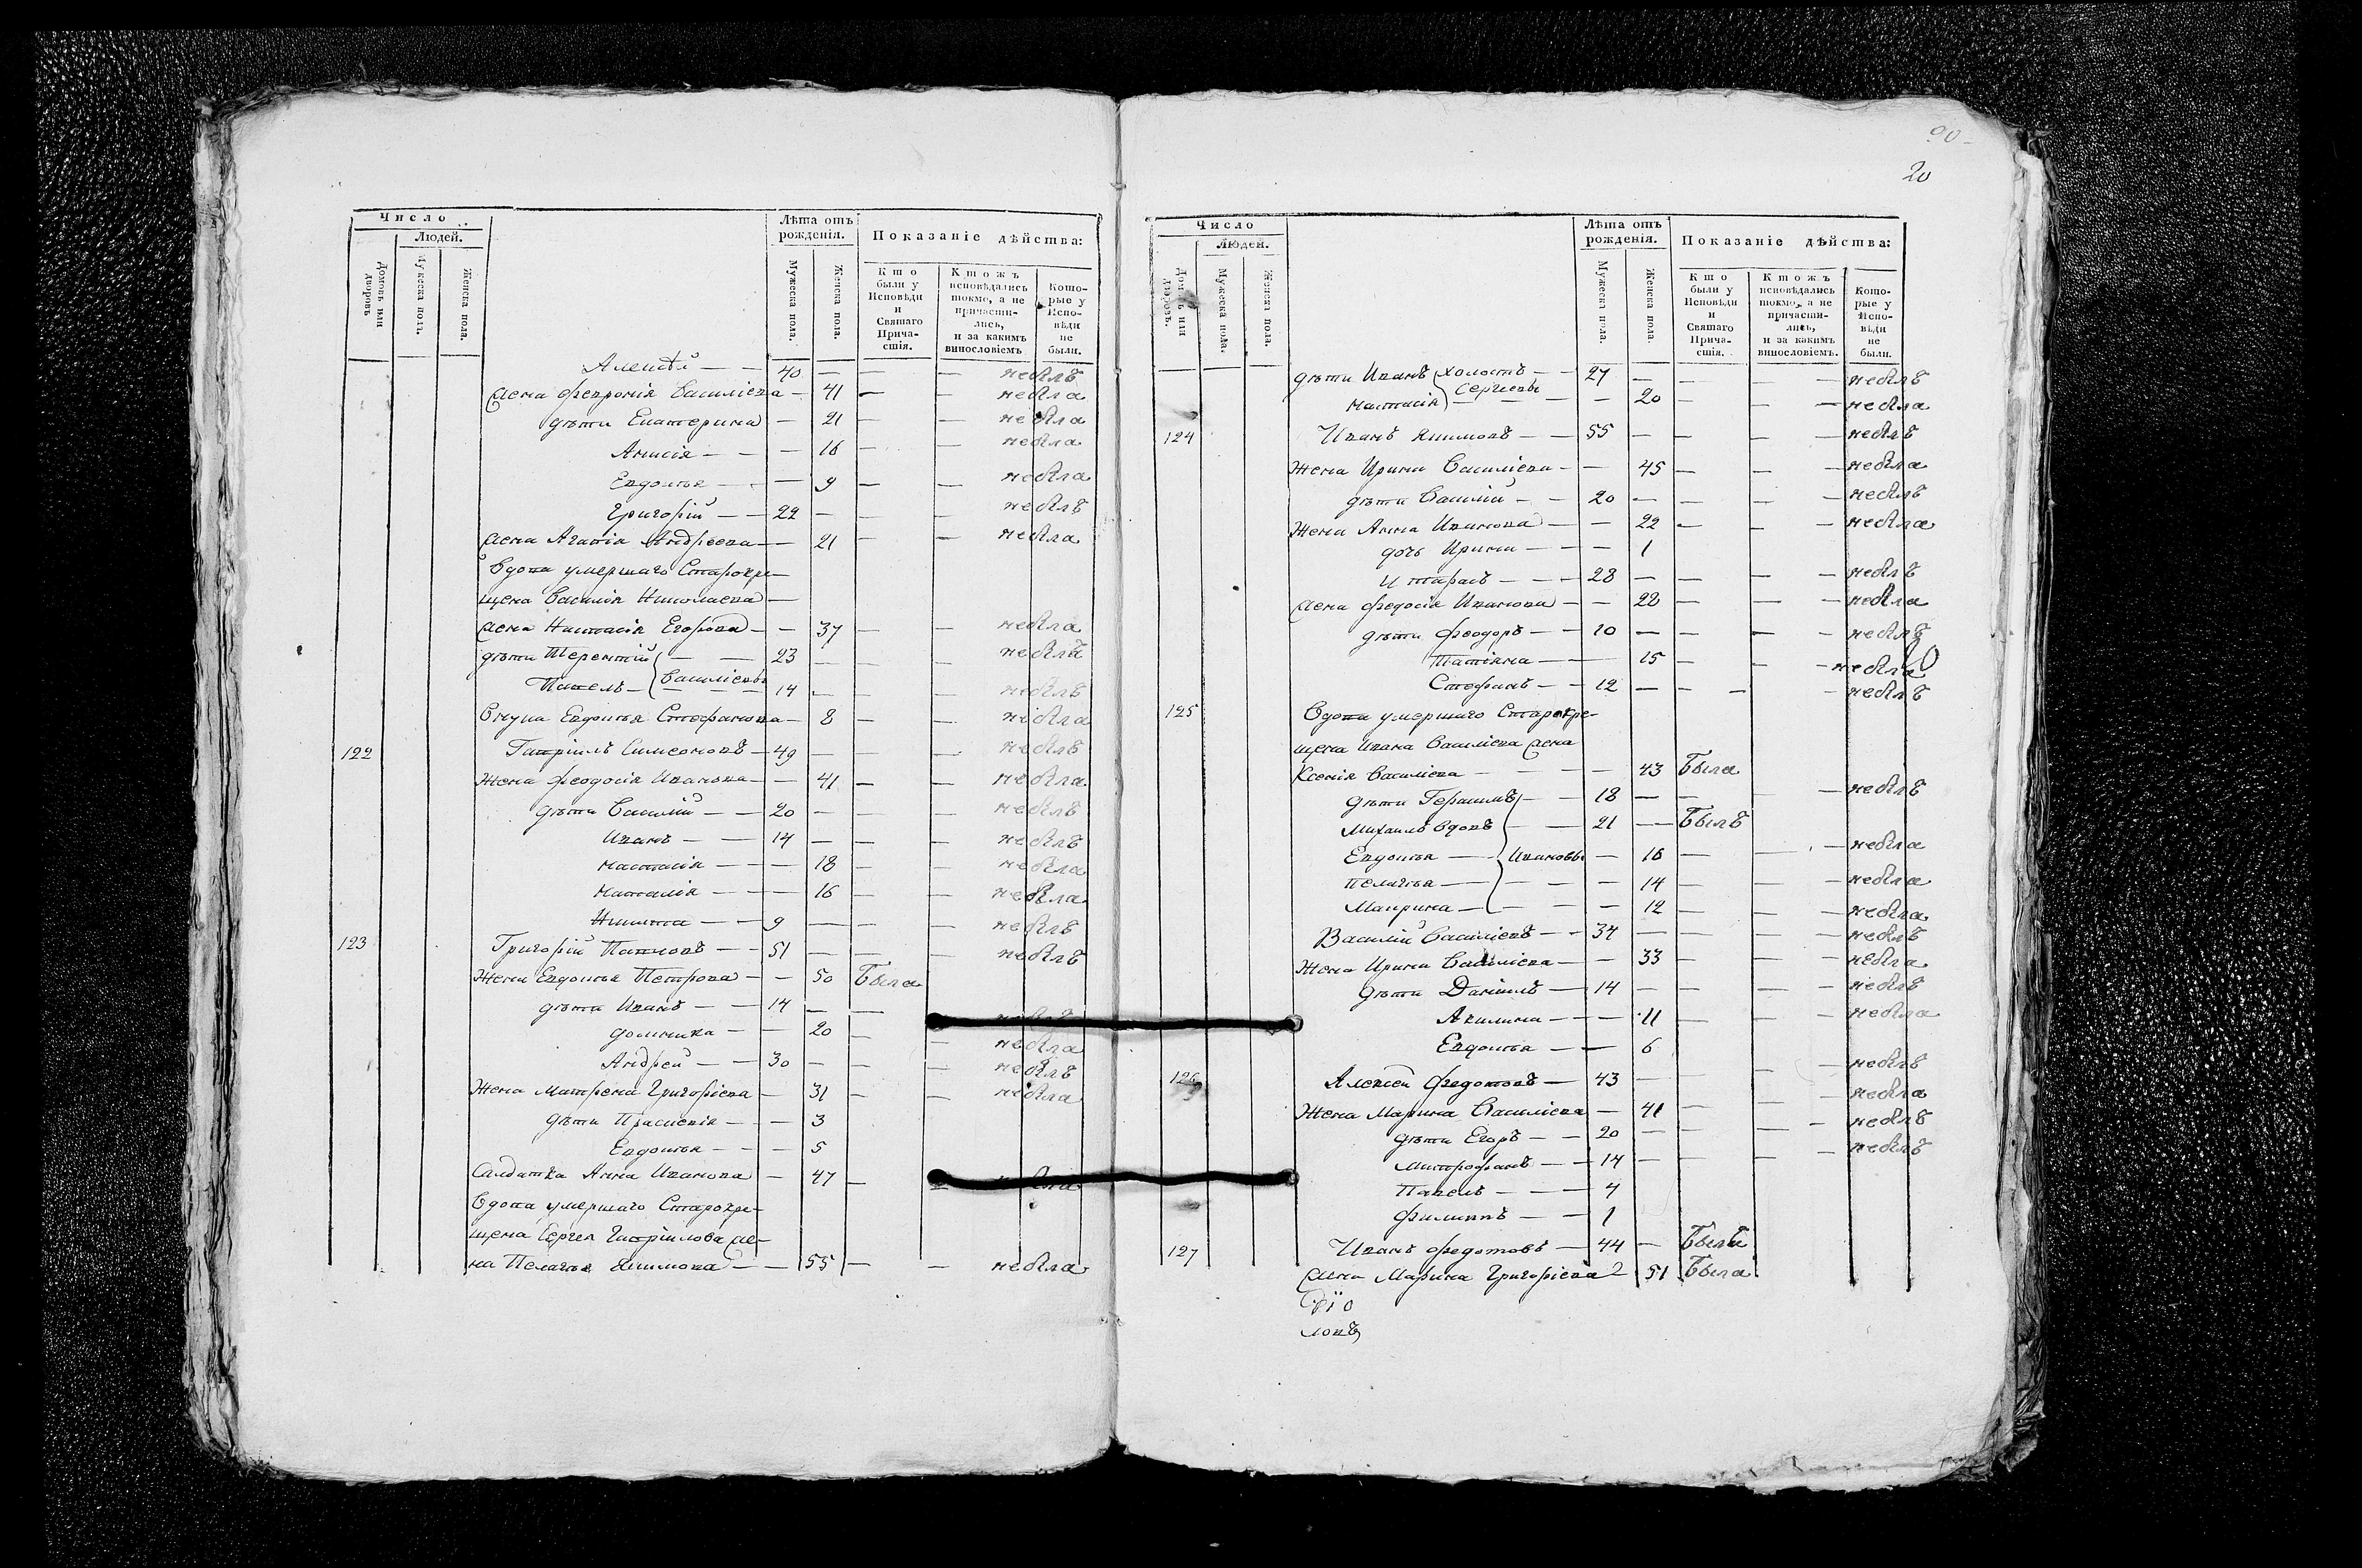 Число
Людей.
Домовъ или дворовъ
Мужеска пола.
Женска пола.
Лѣта отъ рожденія.
Мужеска пола.
Женска пола.
Показаніе дѣйства:
Кто были у Исповѣди и Святаго Причастія.
Ктожъ исповѣдались токмо, а не причастились, и за какимъ винословіемъ
Которые у Исповѣди не были.
Алексѣй — — 40 — — — небылъ
Жена Февронія Василіева — 41 — — небыла
дѣти Екатерина — 21 — — небыла
Анисія — — — 16 — — небыла
Евдокія — — — 9 — — небыла
Григорій — — 22 — — — небылъ
Жена Агапія Андреева — — 21 — — небыла
Вдова умершаго Старокре-
щена Василія Николаева —
Жена Настасія Егорова — — 37 — — небыла
дѣти Терентій — — 23 — — — небылъ
Павелъ — Василіевы 14 — — — небылъ
Внука Евдокія Стефанова — 8 — — небыла
122 Гавріилъ Симеоновъ — 49 — — — небылъ
Жена Феодосія Иванова — — 41 — — небыла
дѣти Василій — — 20 — — — небылъ
Иванъ — — 14 — — — небылъ
Настасія — — — 18 — — небыла
Наталія — — — 16 — — небыла
Никита — — 9 — — — небылъ
123 Григорій Павловъ — — 51 — — — небылъ
Жена Евдокія Петрова — — 50 Была
дѣти Иванъ — — 14 — —
Домника — — 20 — — небыла
Андрей — — 30 — — — небылъ
Жена Матрена Григоріева — 31 — — небыла
дѣти Праскевія — — — 3
Евдокія — — — 5
Салдатка Анна Иванова — 47 — — небыла
Вдова умершаго Старокре-
щена Сергея Гавріилова же-
на Пелагія Якимова — — 55 — — небыла
90
20
Число
Людей.
Домовъ или дворовъ.
Мужеска пола.
Женска пола.
Лѣта отъ рожденія.
Мужеска пола.
Женска пола.
Показаніе дѣйства:
Кто были у Исповѣди и Святаго Причастія.
Ктожъ исповѣдались токмо, а не причастились, и за какимъ винословіемъ.
Которые у Исповѣди не были.
дѣти Иванъ холостъ — — 27 — — — небылъ
Настасія Сергіевы — — 20 — — небыла
124 Иванъ Якимовъ — — 55 — — — небылъ
Жена Ирина Василіева — — 45 — — небыла
дѣти Василій — — 20 — — — небылъ
Жена Анна Иванова — — 22 — — небыла
дочь Ирина — — — 1
И тарасъ — — — 28 — — — небылъ
Жена Федосія Иванова — — 22 — — небыла
дѣти Феодоръ — — 10 — — — небылъ
Татіана — — 15 — — небыла
Стефанъ — — 12 — — — небылъ
125 Вдова умершаго Старокре-
щена Ивана Василіева жена
Ксенія Василіева — — — — 43 Была
дѣти Герасимъ — — 18 — — — небылъ
Михаилъ вдовъ — — 21 — Былъ
Евдокія — Ивановы — 16 — — небыла
Пелагія — — — — 14 — — небыла
Маврина — — — — 12 — — небыла
Василій Василіевъ — — 34 — — — небылъ
Жена Ирина Василіева — — 33 — — небыла
дѣти Даніилъ — 14 — — — небылъ
Акилина — — — 11 — — небыла
Евдокія — — 6
126 Алексей Федотовъ — 43 — — — небылъ
Жена Марина Василіева — 41 — — небыла
дѣти Егоръ — — 20 — — — небылъ
Митрофанъ — — 14 — — — небылъ
Павелъ — — — 4
Филиппъ — — 1
127 Иванъ Федотовъ — 44 — Былъ
Жена Марина Григоріева — 51 Была
ловъ